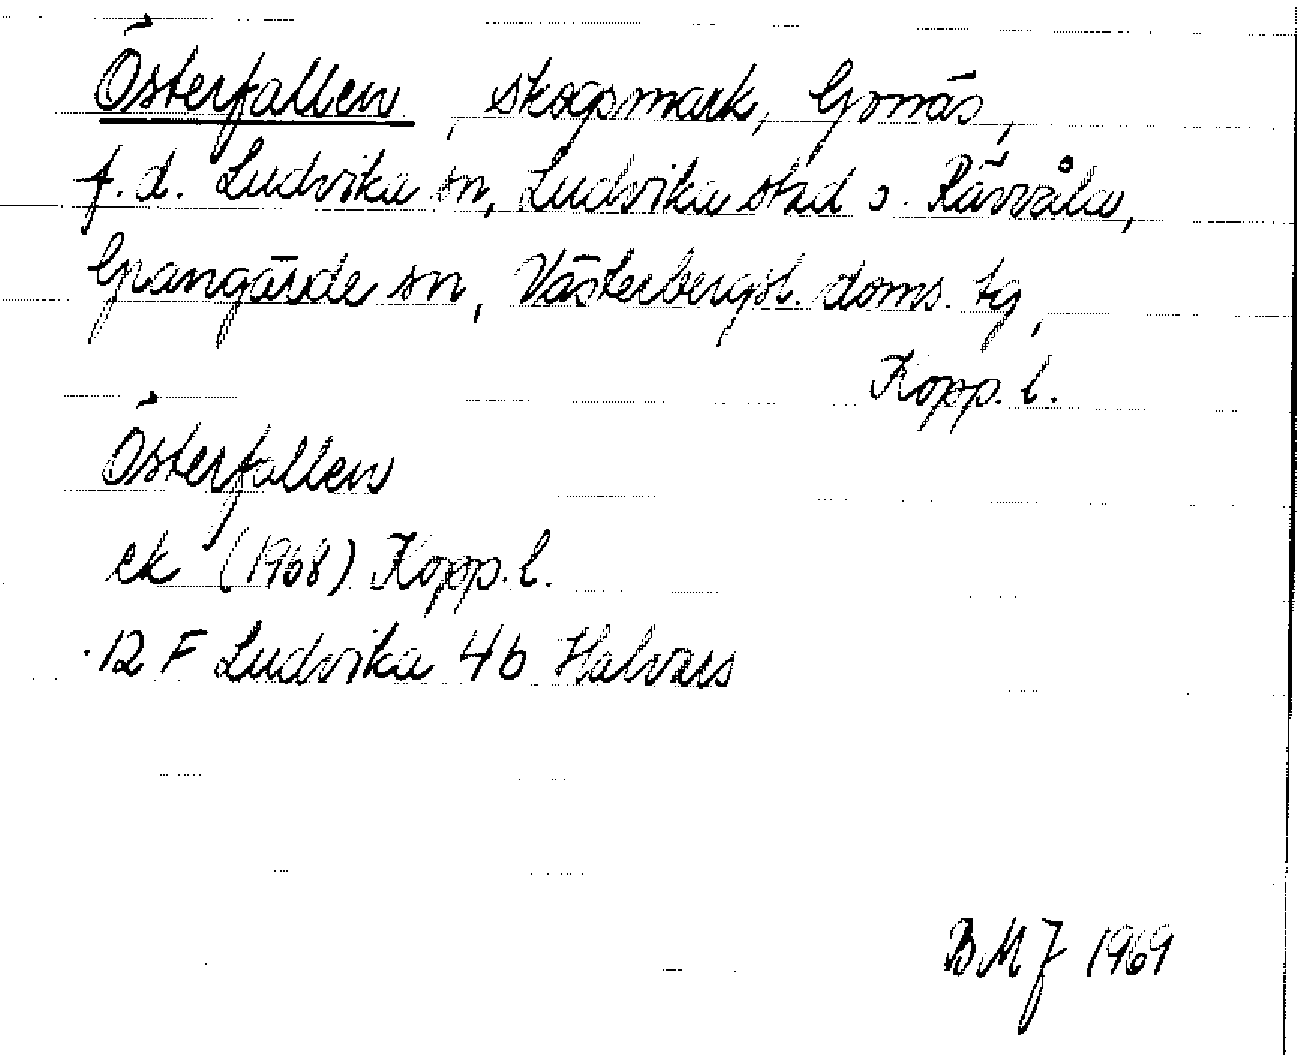 Österfallen, skogsmark, Gonäs,
f.d. Ludvika sn, Ludvika stad o. Rävvåla,
Grangärde sn, Västerbergsl. doms. tg,
Kopp. l.
Österfallen
ek (1968) Kopp. l.
12 F Ludvika 4b Halvars
BMJ 1969